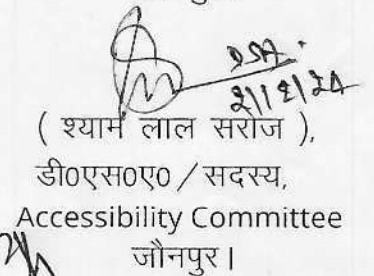 DSA
( श्याम लाल सरोज ),
डी0एस0ए0 / सदस्य,
Accessibility Committee
जौनपुर।